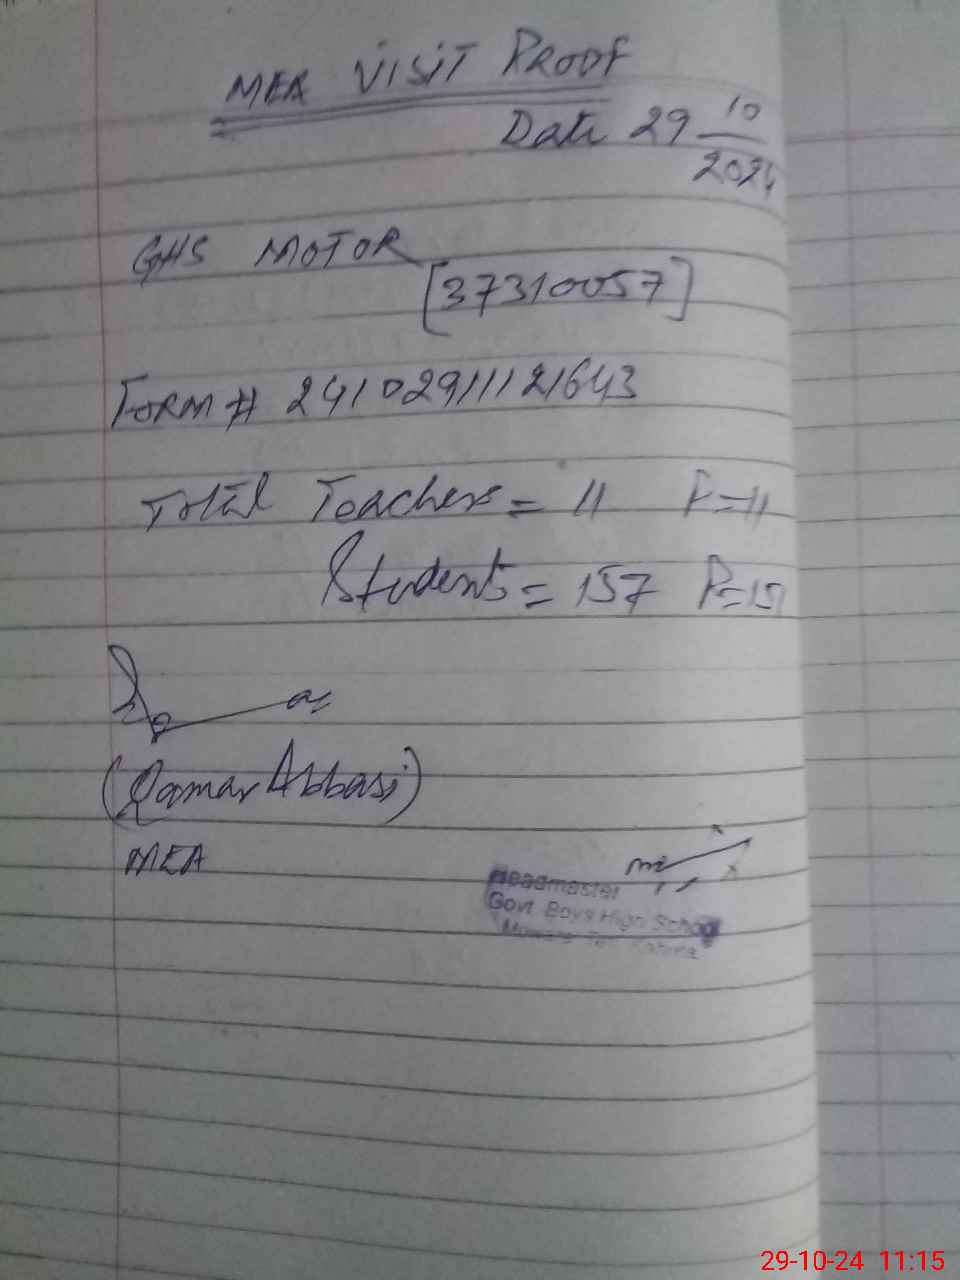 MEA VISIT PROOF
Date 29 10
2024
GHS MOTOR
[37310057]
FORM # 24102911121643
Total Teachers = 11 P=11
Students = 157 P=15
(Qamar Abbasi)
MEA
Headmaster
Govt. Boys High School
29-10-24 11:15